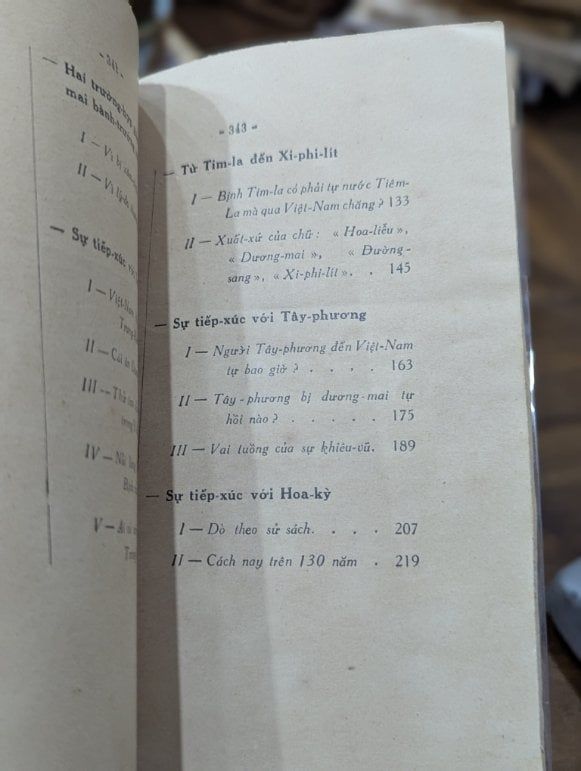 - 341 -
— Hai trường-hợp
mai bành-trướng
I — Vì bị
II — Vì
— Sự tiếp-xúc với
I — Việt-Nam
II — Cái
III — Thử
IV —
V — Ai
- 343 -
— Từ Tim-la đến Xi-phi-lít
I — Bịnh Tim-la có phải tự nước Tiêm-
La mà qua Việt-Nam chăng ? 133
II — Xuất-xứ của chữ : « Hoa-liễu »,
« Dương-mai », « Đường-
sang », « Xi-phi-lít ». . 145
— Sự tiếp-xúc với Tây-phương
I — Người Tây-phương đến Việt-Nam
tự bao giờ ? . . . . 163
II — Tây-phương bị dương-mai tự
hồi nào ? . . . . . 175
III — Vai tuồng của sự khiêu-vũ. 189
— Sự tiếp-xúc với Hoa-kỳ
I — Dò theo sử sách. . . . 207
II — Cách nay trên 130 năm . 219